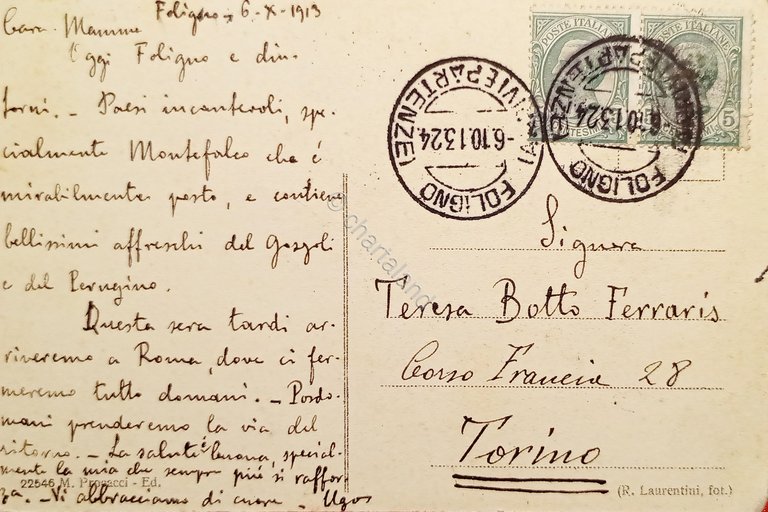 Foligno, 6-X-1913
Cara Mamma
Oggi Foligno e din-
torni. - Paesi incantevoli, spe-
cialmente Montefalco che è
mirabilmente posto, e contiene
bellissimi affreschi del Gozzoli
e del Perugino.
Questa sera tardi ar-
riveremo a Roma, dove ci fer-
meremo tutto domani. - Posdo-
mani prenderemo la via del
ritorno. - La salute è buona, special-
mente la mia che sempre più si raffor-
za. - Vi abbracciamo di cuore - Ugo
22546 M. Progacci - Ed.
POSTE ITALIANE
POSTE ITALIANE
5
FOLIGNO
(ARRIVI E PARTENZE)
-6.10.13 24
FOLIGNO
(ARRIVI E PARTENZE)
-6.10.13 24
Signora
Teresa Botto Ferraris
Corso Francia 28
Torino
(R. Laurentini, fot.)
© chartaland